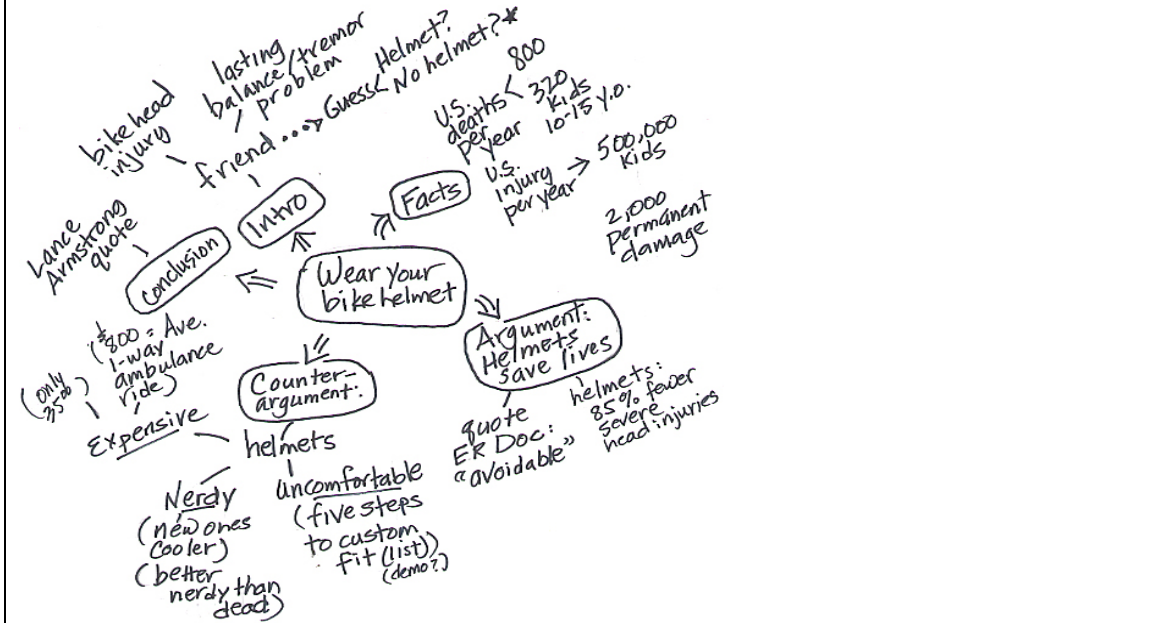 Wear your
bike helmet
Intro
friend
bike head
injury
lasting
balance/tremor
problem
Guess
Helmet?
No helmet?*
Facts
U.S.
deaths
per
year
800
320
kids
10-15 y.o.
U.S.
injury
per year
500,000
kids
2,000
permanent
damage
Argument:
Helmets
save lives
quote
ER Doc:
"avoidable"
helmets:
85% fewer
severe
head injuries
Counter-
argument:
helmets
Expensive
(only
)
($800 = Ave.
1-way
ambulance
ride)
Nerdy
(new ones
cooler)
(better
nerdy than
dead)
Uncomfortable
(five steps
to custom
fit (list))
(demo?)
Conclusion
Lance
Armstrong
quote